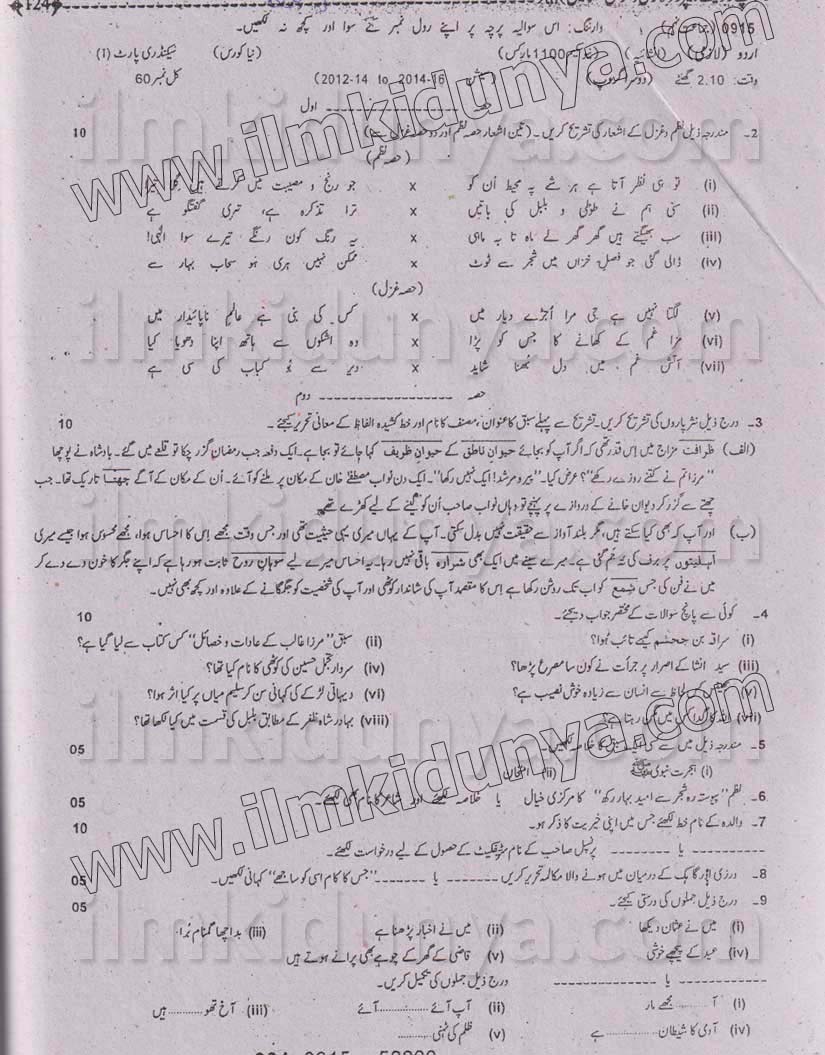 124
0915 وارننگ: اس سوالیہ پرچہ پر اپنے رول نمبر کے سوا اور کچھ نہ لکھیں۔
اردو (لازمی) (انشائیہ) 1100 مارکس (نیا کورس) سیکنڈری پارٹ (I)
وقت: 2.10 گھنٹے (دوسرا گروپ) (2012-14 to 2014-16) کل نمبر 60
حصہ اول
2۔ مندرجہ ذیل نظم و غزل کے اشعار کی تشریح کریں۔ (تین اشعار حصہ نظم اور دو حصہ غزل سے) 10
(حصہ نظم)
(i) تو ہی نظر آتا ہے ہر شے پہ محیط اُن کو x جو رنج و مصیبت میں کرتے ہیں
(ii) سنی ہم نے طوطی و بلبل کی باتیں x ترا تذکرہ ہے، تری گفتگو ہے
(iii) سب بھیگتے ہیں گھر گھر لے ماہ تا بہ ماہی x یہ رنگ کون رنگے تیرے سوا الٰہی!
(iv) ڈالی گئی جو فصلِ خزاں میں شجر سے ٹوٹ x ممکن نہیں ہری ہو سحاب بہار سے
(حصہ غزل)
(v) لگتا نہیں ہے جی مرا اُجڑے دیار میں x کس کی بنی ہے عالمِ ناپائیدار میں
(vi) مزا غم کے کھانے کا جس کو پڑا x وہ اشکوں سے ہاتھ اپنا دھویا کیا
(vii) آتش غم میں دل بھنا شاید x دیر سے بُو کباب کی سی ہے
حصہ دوم
3۔ درج ذیل نثرپاروں کی تشریح کریں۔ تشریح سے پہلے سبق کا عنوان، مصنف کا نام اور خط کشیدہ الفاظ کے معانی تحریر کیجئے۔ 10
(الف) ظرافت مزاج میں اس قدر تھی کہ اگر آپ کو بجائے حیوانِ ناطق کے حیوانِ ظریف کہا جائے تو بجا ہے۔ ایک دفعہ جب رمضان گزر چکا تو قلعے میں گئے۔ بادشاہ نے پوچھا
"مرزا تم نے کتنے روزے رکھے"؟ عرض کیا۔ "پیر و مرشد! ایک نہیں رکھا"۔ ایک دن نواب مصطفےٰ خان کے مکان پر ملنے کو آئے۔ اُن کے مکان کے آگے چھتا تاریک تھا۔ جب
چھتے سے گزر کر دیوان خانے کے دروازے پر پہنچے تو وہاں نواب صاحب اُن کو لینے کے لیے کھڑے تھے
(ب) اور آپ کہہ بھی کیا سکتے ہیں، مگر بلند آواز سے حقیقت نہیں بدل سکتی۔ آپ کے یہاں میری یہی حیثیت تھی اور جس وقت مجھے اس کا احساس ہوا، مجھے محسوس ہوا جیسے میری
اہلیتوں پر برف کی تہ جم گئی ہے۔ میرے سینے میں ایک بھی شرارہ باقی نہیں رہا۔ یہ احساس میرے لیے سوہانِ روح ثابت ہو رہا ہے کہ اپنے جگر کا خون دے دے کر
میں نے فن کی جس شمع کو اب تک روشن رکھا ہے اس کا مقصد آپ کی شاندار کوٹھی اور آپ کی شخصیت کو جگمگانے کے علاوہ اور کچھ بھی نہیں۔
4۔ کوئی سے پانچ سوالات کے مختصر جواب دیجئے۔ 10
(i) سراقہ بن جعشم کیسے تائب ہُوا؟ (ii) سبق "مرزا غالب کے عادات و خصائل" کس کتاب سے لیا گیا ہے؟
(iii) سید انشا کے اصرار پر جرأت نے کون سا مصرع پڑھا؟ (iv) سردار تجمل حسین کی کوٹھی کا نام کیا تھا؟
کس لحاظ سے انسان سے زیادہ خوش نصیب ہے؟ (vi) دیہاتی لڑکے کی کہانی سن کر سلیم میاں پر کیا اثر ہوا؟
(vii) رہتا ہے؟ (viii) بہادر شاہ ظفر کے مطابق بلبل کی قسمت میں کیا لکھا تھا؟
5۔ مندرجہ ذیل میں سے کسی ایک سبق کا خلاصہ لکھیں۔ 05
(i) ہجرت نبوی ﷺ (ii) امتحان
6۔ نظم "پیوستہ رہ شجر سے امید بہار رکھ" کا مرکزی خیال یا خلاصہ لکھئے اور شاعر کا نام بھی لکھئے۔ 05
7۔ والدہ کے نام خط لکھئے جس میں اپنی خیریت کا ذکر ہو۔ 10
یا پرنسپل صاحب کے نام سرٹیفکیٹ کے حصول کے لیے درخواست لکھئے۔
8۔ درزی اور گاہک کے درمیان میں ہونے والا مکالمہ تحریر کریں یا "جس کا کام اسی کو ساجھے" کہانی لکھیں۔ 05
9۔ درج ذیل جملوں کی درستی کیجئے۔ 05
(i) میں نے عثمان دیکھا (ii) میں نے اخبار پڑھنا ہے (iii) بد اچھا گمنام بُرا
(iv) عید کے پیچھے خوشی (v) قاضی کے گھر کے چوہے بھی پرانے ہوتے ہیں
یا درج ذیل جملوں کی تکمیل کریں۔
(i) آ ........ مجھے مار (ii) آپ آئے ........ آئے (iii) آخ تھو ........ ہیں
(iv) آدمی کا شیطان ........ ہے (v) ظلم کی ٹہنی ........
www.ilmkidunya.com
ilmkidunya.com